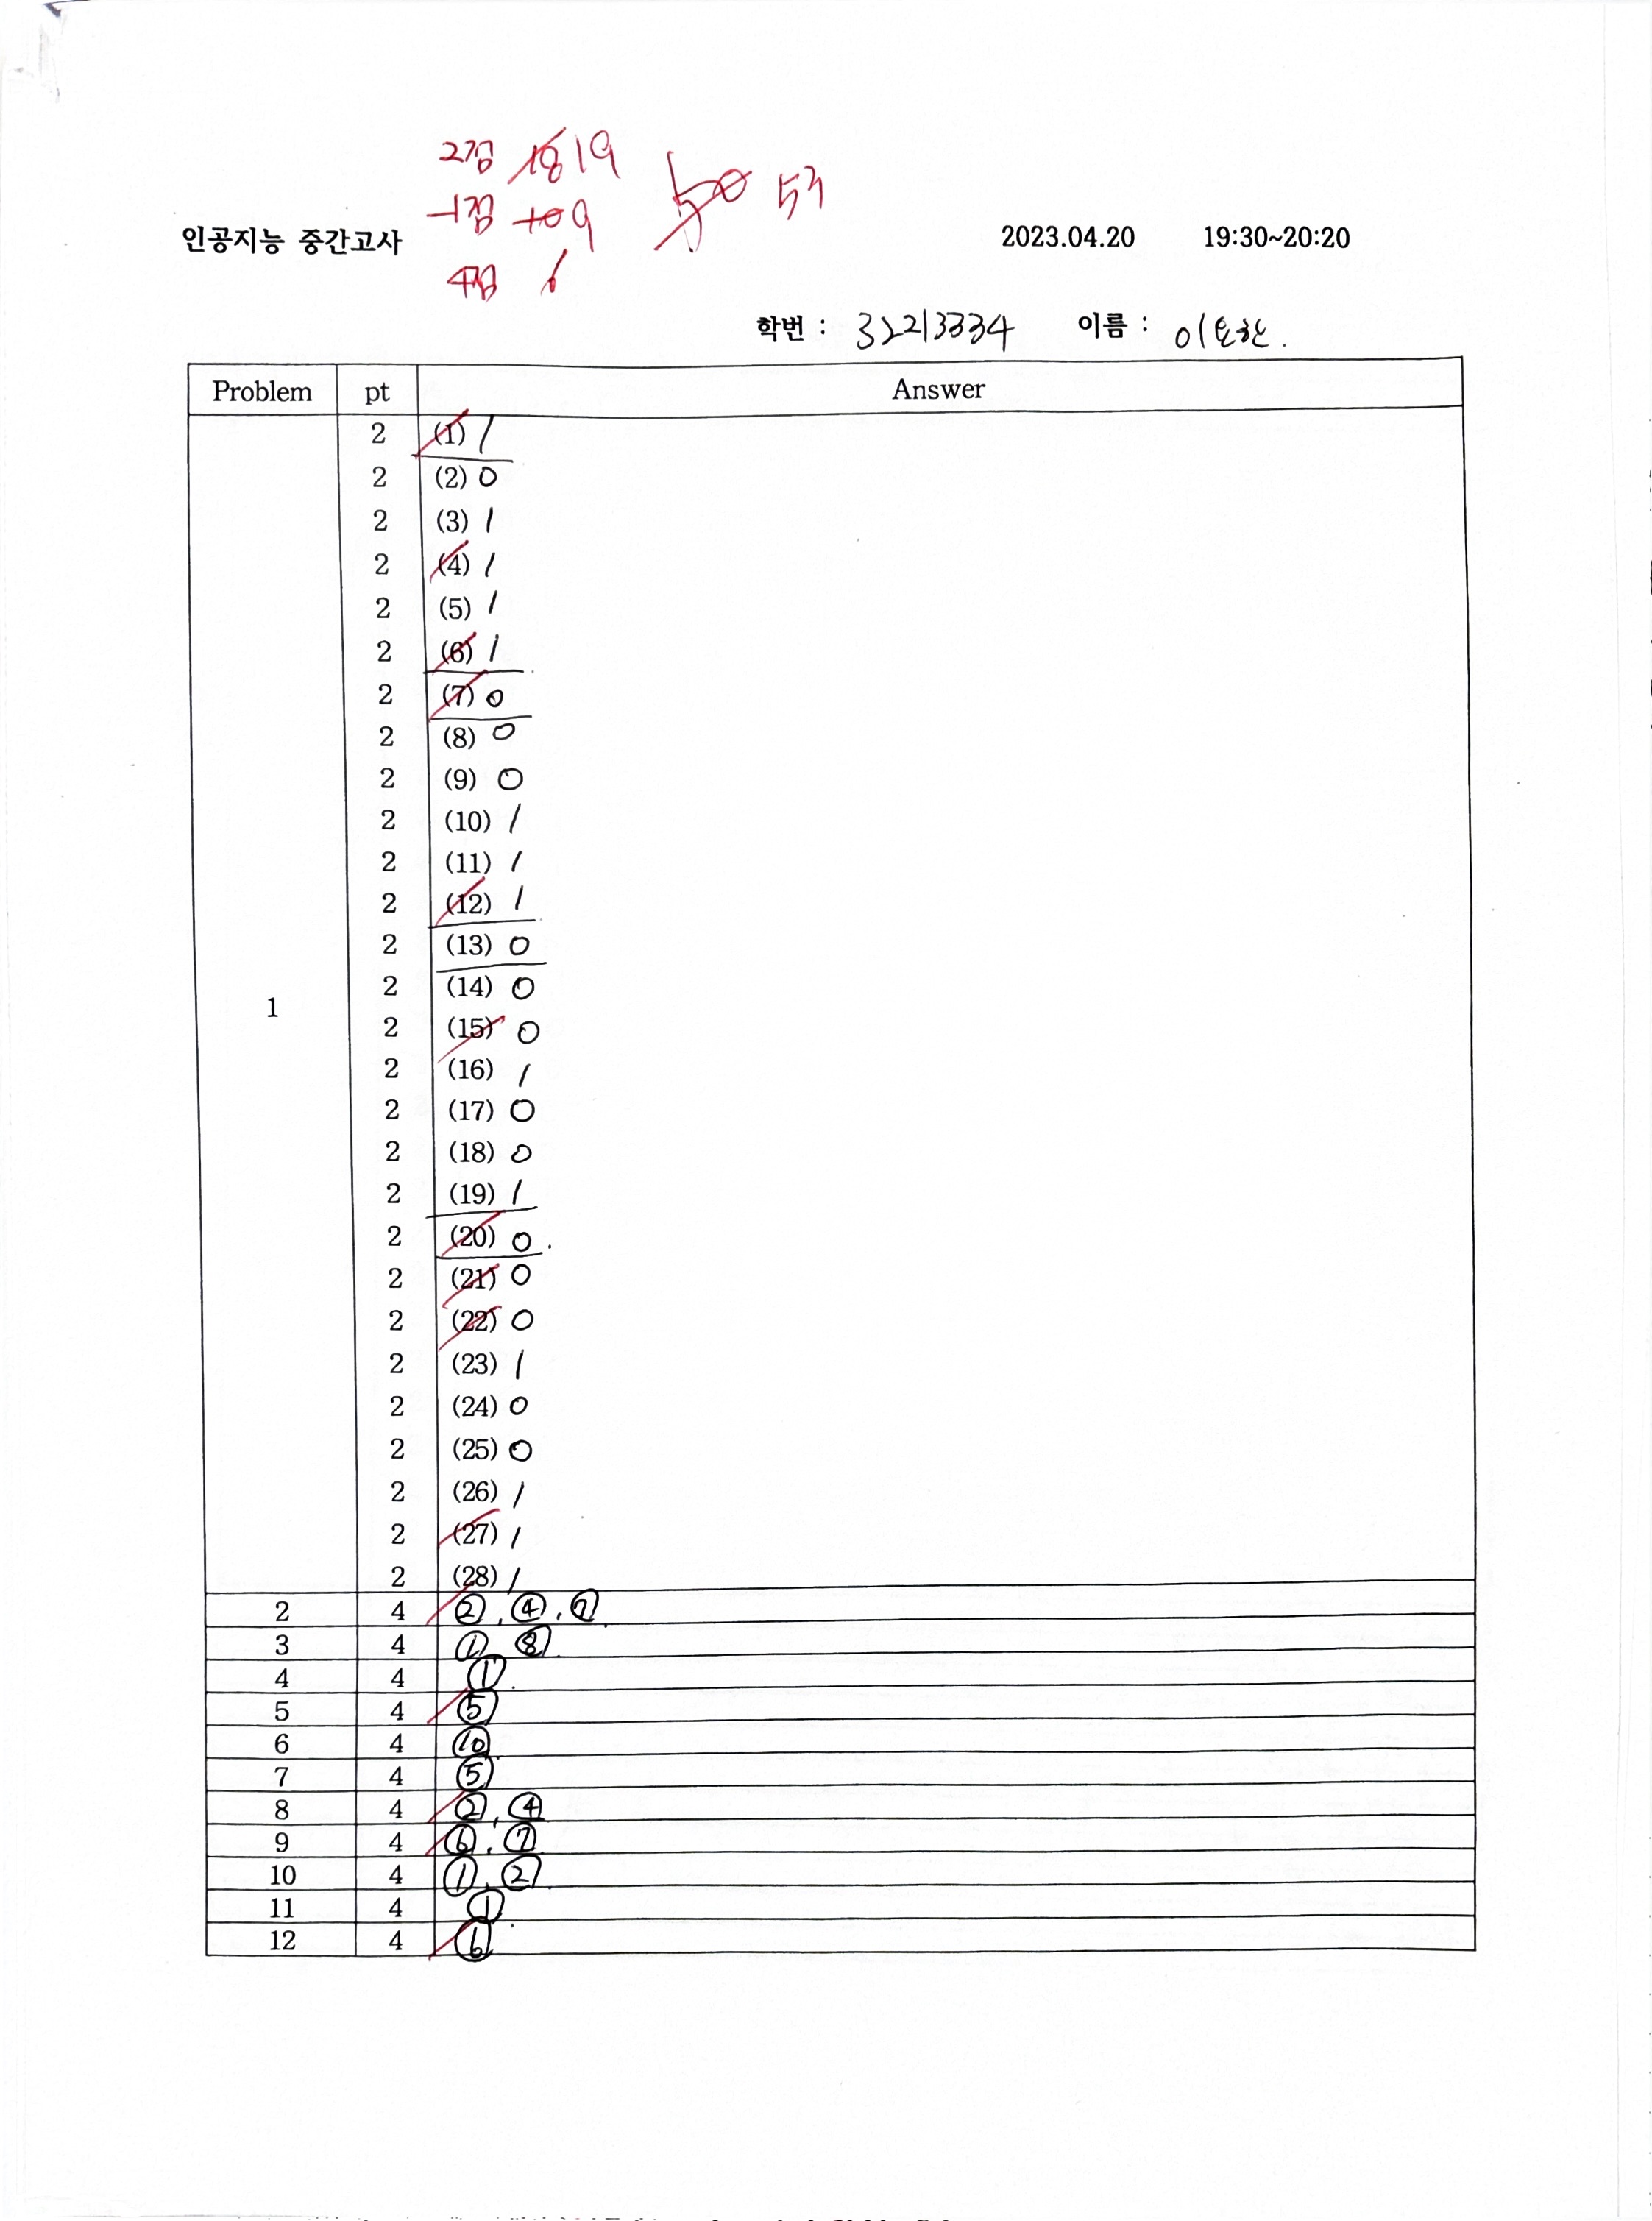 2점 18 19 50 53
-1점 10 9
인공지능 중간고사 2023.04.20 19:30~20:20
4점 6
학번 : 32213334 이름 :
Problem pt Answer
2 (1) 1
2 (2) 0
2 (3) 1
2 (4) 1
2 (5) 1
2 (6) 1
2 (7) 0
2 (8) 0
2 (9) 0
2 (10) 1
2 (11) 1
2 (12) 1
2 (13) 0
2 (14) 0
1
2 (15) 0
2 (16) 1
2 (17) 0
2 (18) 0
2 (19) 1
2 (20) 0.
2 (21) 0
2 (22) 0
2 (23) 1
2 (24) 0
2 (25) 0
2 (26) 1
2 (27) 1
2 (28) 1
2 4 ②, ④, ⑦
3 4 ①, ⑧
4 4 ①
5 4 ⑤
6 4 ⑩
7 4 ⑤
8 4 ②, ④
9 4 ⑥, ⑦
10 4 ①, ②
11 4 ①
12 4 ⑥